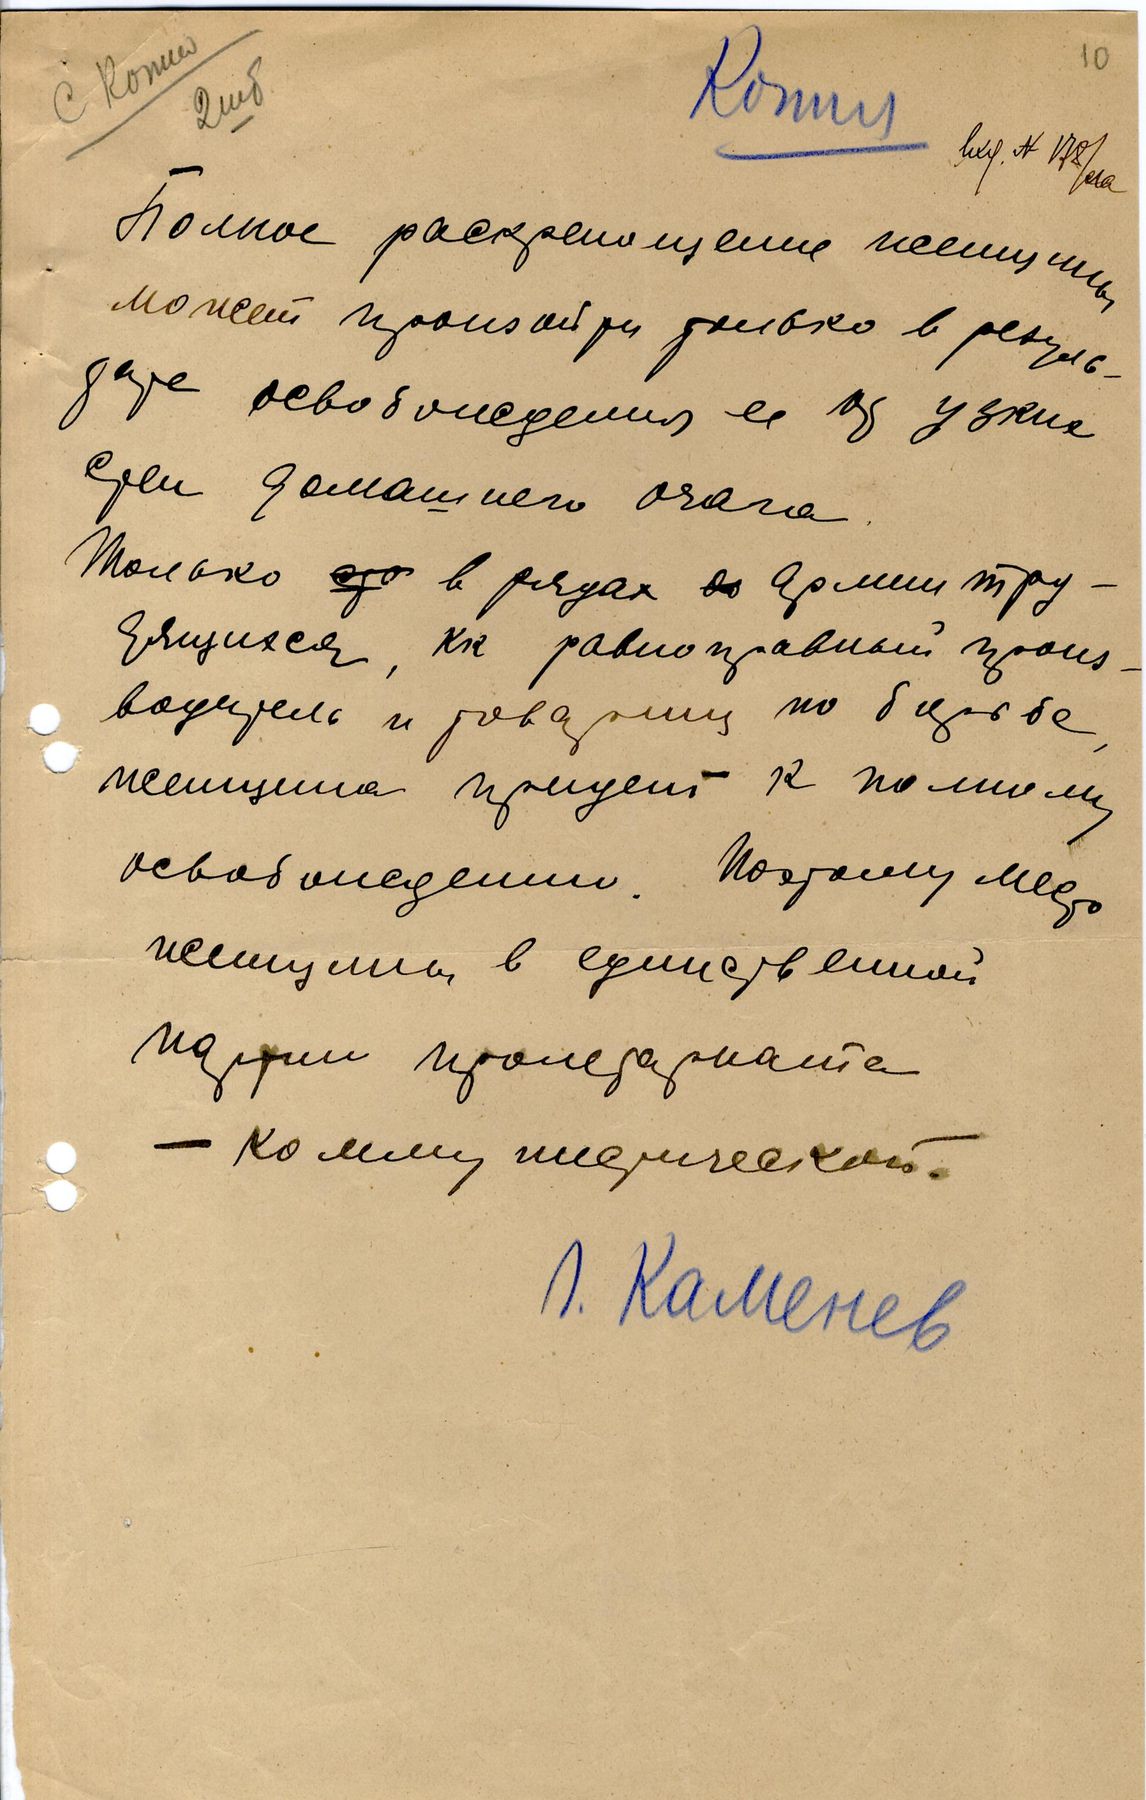 С Копии
10
Копия
вход. № 178/
Полное раскрепощение женщины
может произойти только в резуль-
тате освобождения ее от узких
стен домашнего очага.
Только это в рядах во армии тру-
дящихся, кк равноправный произ-
водитель и товарищ по борьбе,
женщина придет к полному
освобождению. Поэтому место
женщины в единственной
партии пролетариата
— коммунистической.
Л. Каменев